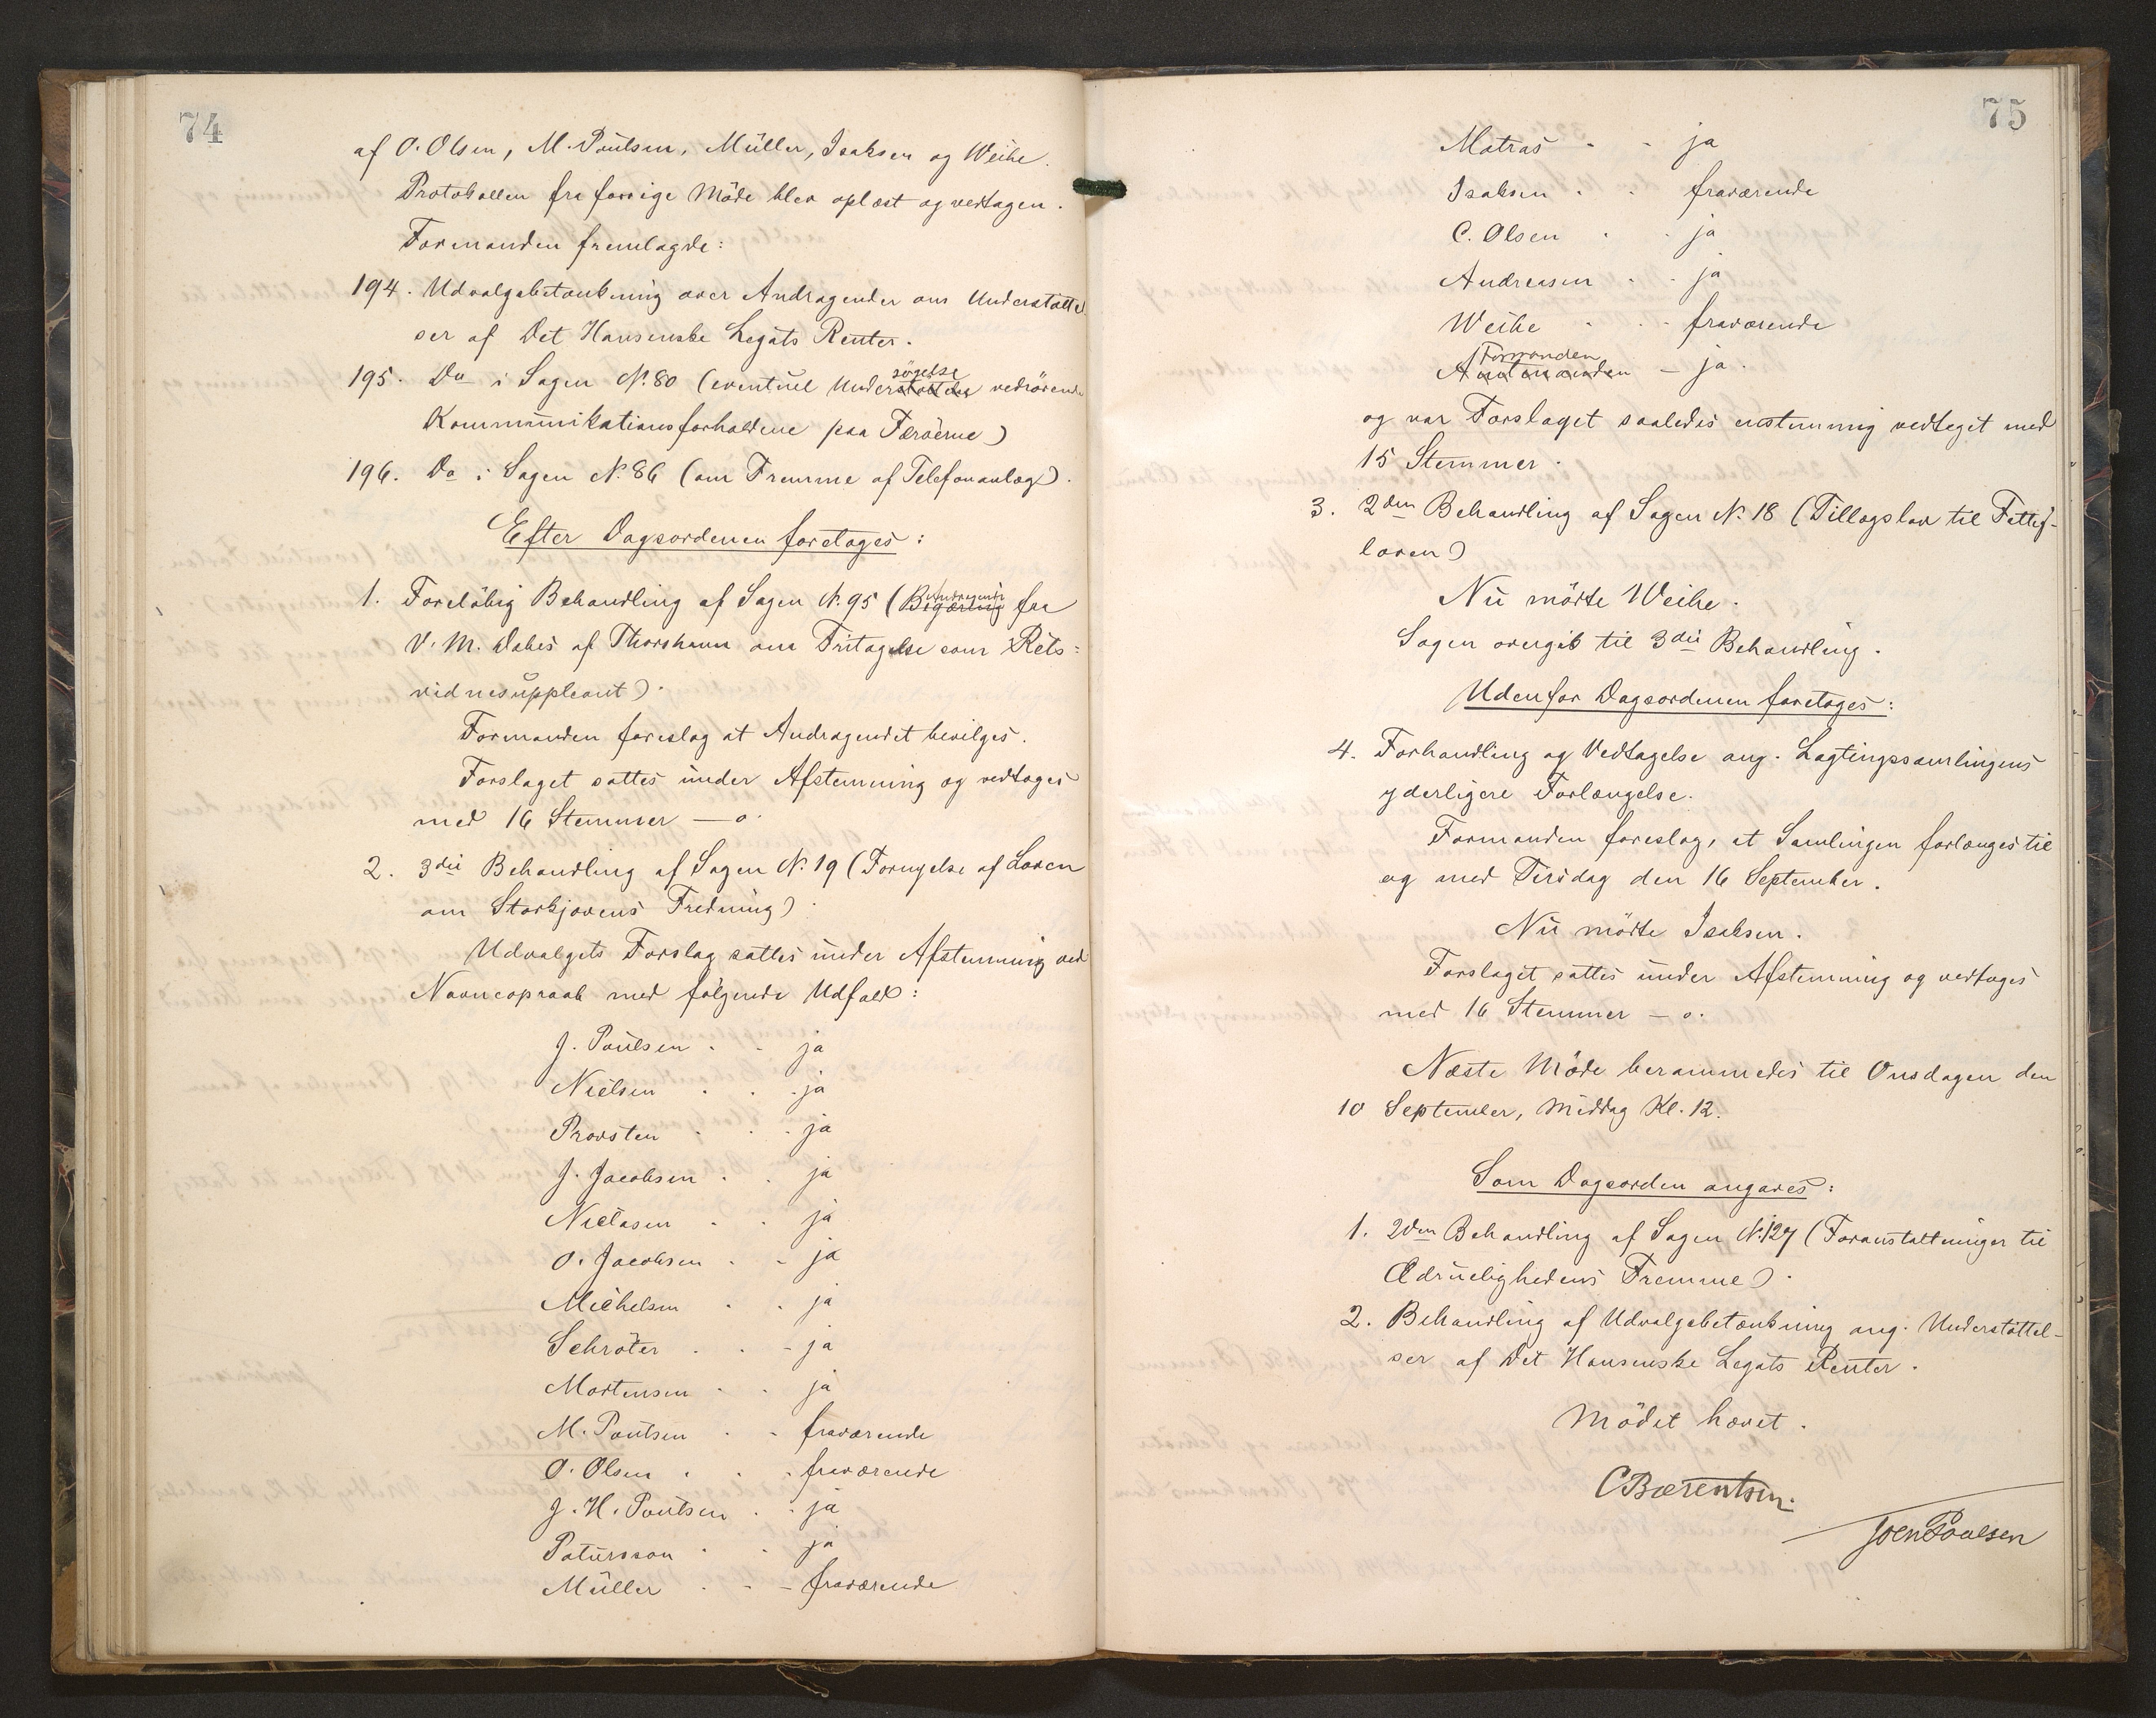 74
af O. Olsen, M. Poulsen, Müller, Isaksen og Weihe.
Protokollen fra forrige Möde blev oplæst og vedtagen.
Formanden fremlagde:
194. Udvalgsbetænkning over Andragender om Understøttel
ser af Det Hansenske Legats Renter.
195. Do i Sagen N. 80 (eventuel Understøttelse søgelse vedrörende
Kommunikationsforholdene paa Færöerne)
196. Do i Sagen N. 86 (om Fremme af Telefonanlæg).
Efter Dagsordenen foretoges:
1. Foreløbig Behandling af Sagen N. 95 (Begæring Andragende fra
V. M. Dahes af Thorshavn om Fritagelse som Rets=
vidnesuppleant).
Formanden foreslog at Andragendet bevilges.
Forslaget sattes under Afstemning og vedtoges
med 16 Stemmer — o.
2. 3die Behandling af Sagen N. 19 (Fornyelse af Loven
om Storkjovens Fredning)
Udvalgets Forslag sattes under Afstemning ved
Navneopraab med følgende Udfald:
J. Poulsen . . ja
Nielsen . . ja
Provsten . . ja
J. Jacobsen . . ja
Niclasen . . ja
O. Jacobsen . . ja
Michelsen . . ja
Schröter . . ja
Mortensen . . ja
M. Poulsen . . fraværende
O. Olsen . . fraværende
J. H. Poulsen . . ja
Patursson . . ja
Müller . . fraværende
75
Matras . . ja
Isaksen . . fraværende
C. Olsen . . ja
Andreasen . . ja
Weihe . . fraværende
Formanden
Amtmanden — ja.
og var Forslaget saaledes enstemmig vedtaget med
15 Stemmer.
3. 2den Behandling af Sagen N. 18 (Tillægslov til Fattig-
loven)
Nu mödte Weihe.
Sagen overgik til 3die Behandling.
Udenfor Dagsordenen foretoges:
4. Forhandling og Vedtagelse ang. Lagtingssamlingens
yderligere Forlængelse.
Formanden foreslog, at Samlingen forlænges til
og med Tirsdag den 16 September.
Nu mödte Isaksen.
Forslaget sattes under Afstemning og vedtoges
med 16 Stemmer — o.
Næste Möde berammedes til Onsdagen den
10 September, Middag Kl. 12.
Som Dagsorden angaves:
1. 2den Behandling af Sagen N. 127 (Foranstaltninger til
Ædruelighedens Fremme).
2. Behandling af Udvalgsbetænkning ang. Understøttel-
ser af Det Hansenske Legats Renter.
Mödet hævet.
C Bærentsen.
Joen Poulsen